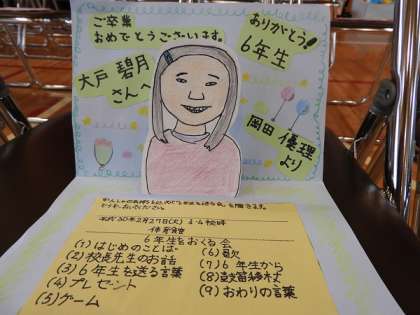 ご卒業
おめでとうございます。
大戸 碧月
さんへ
ありがとう!!
6年生
岡田 優理
より
平成30年2月27日(火)
体育館
6年生をおくる会
(1)はじめのことば
(2)校長先生のお話
(3)6年生を送る言葉
(4)プレゼント
(5)ゲーム
(6)歌
(7)6年生から
(8)
(9)おわりの言葉